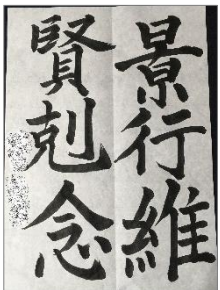 景行維
賢剋念